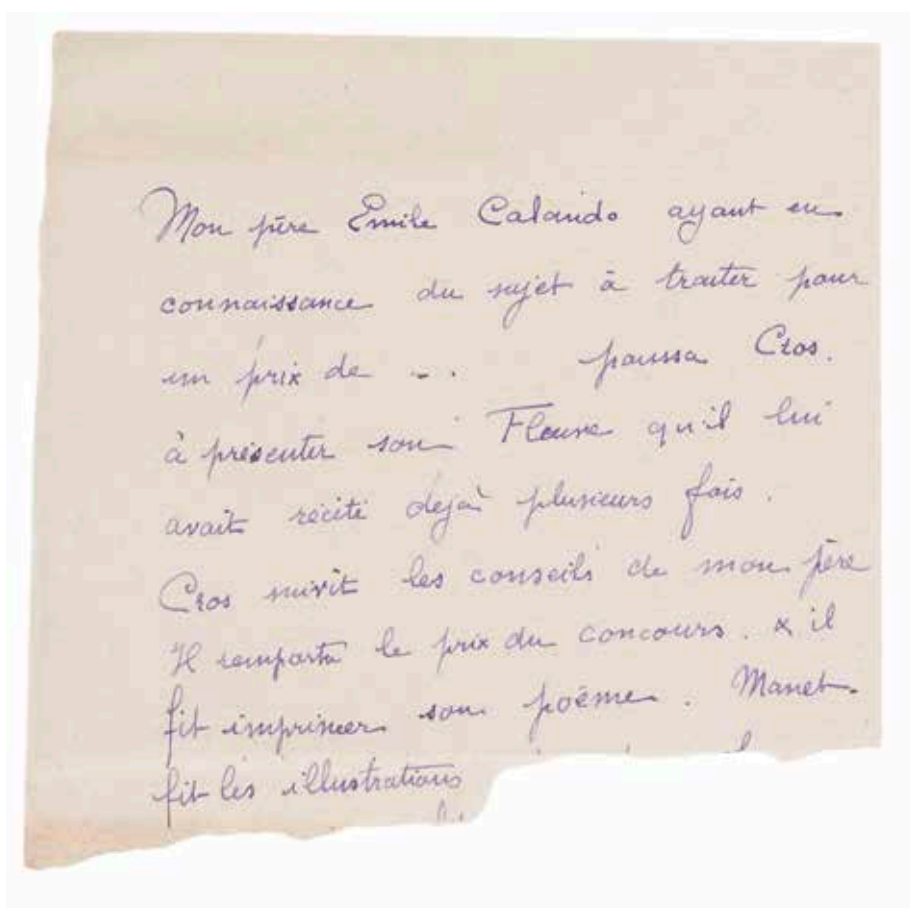 Mon père Emile Calando ayant eu
connaissance du sujet à traiter pour
un prix de ... poussa Cros.
à présenter son Fleuve qu'il lui
avait récité dejà plusieurs fois.
Cros suivit les conseils de mon père
Il remporta le prix du concours. & il
fit imprimer son poème. Manet.
fit les illustrations